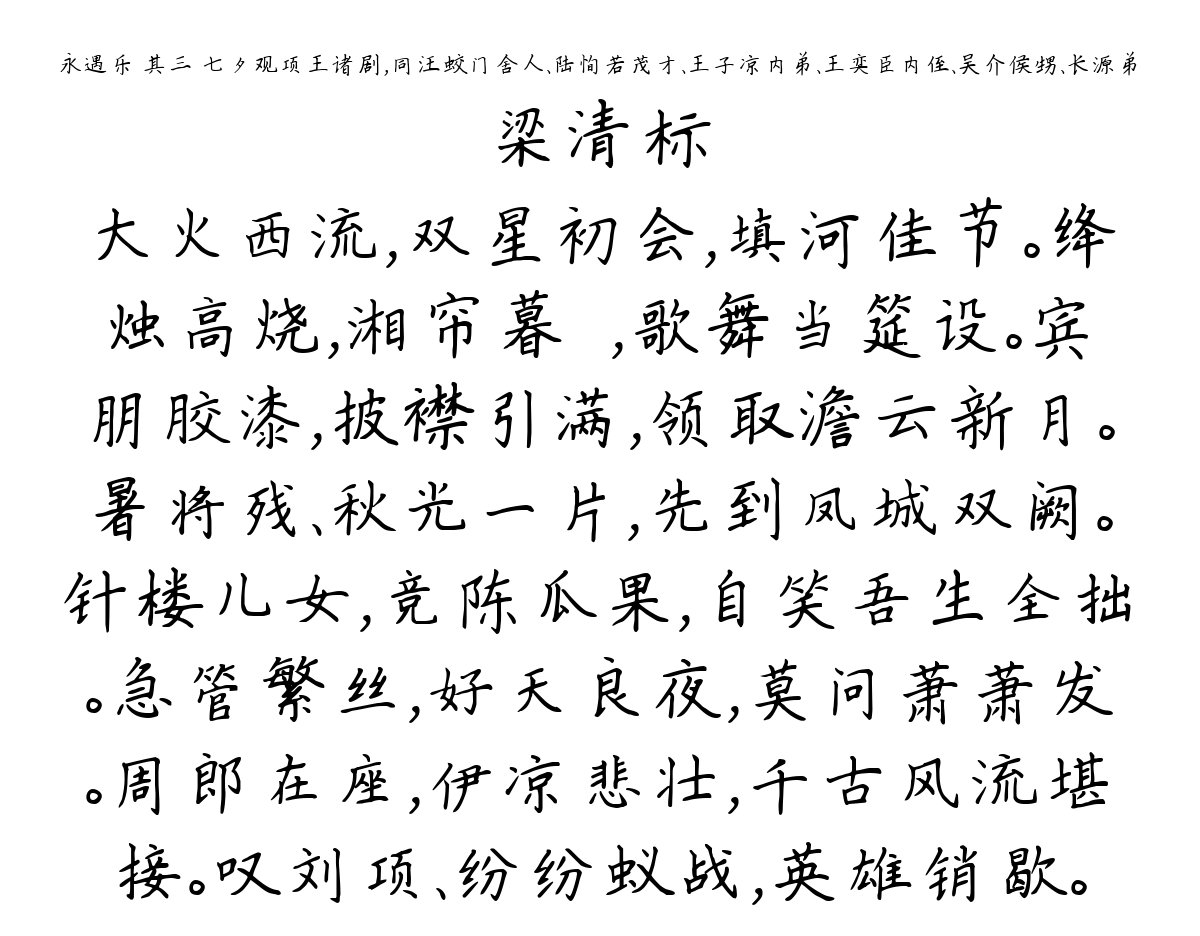 永遇乐 其三 七夕观项王诸剧,同汪蛟门舍人、陆恂若茂才、王子凉内弟、王奕臣内侄、吴介侯甥、长源弟
梁清标
大火西流,双星初会,填河佳节。绛
烛高烧,湘帘暮 ,歌舞当筵设。宾
朋胶漆,披襟引满,领取澹云新月。
暑将残、秋光一片,先到凤城双阙。
针楼儿女,竞陈瓜果,自笑吾生全拙
。急管繁丝,好天良夜,莫问萧萧发
。周郎在座,伊凉悲壮,千古风流堪
接。叹刘项、纷纷蚁战,英雄销歇。